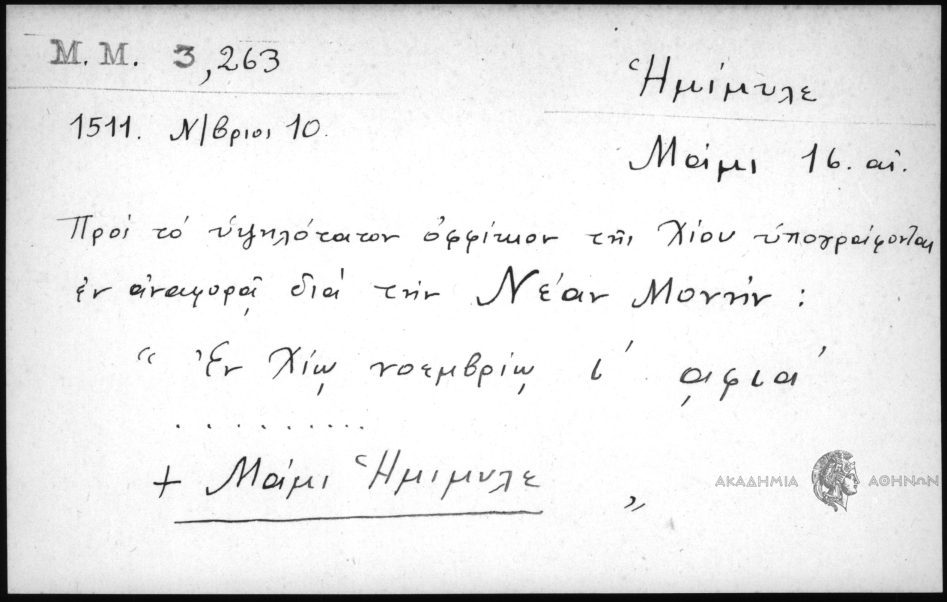 Μ. Μ. 3,263
Ἡμίμυλε
1511. Ν/βριος 10.
Μάμι 16. αἰ.
Πρὸς τὸ ὑψηλότατον ὀφφίκιον τῆς Χίου ὑπογράφονται
ἐν ἀναφορᾷ διὰ τὴν Νέαν Μονήν :
“ Ἐν Χίῳ νοεμβρίῳ ι΄ ͵αφια΄
. . . . . . . . . .
+ Μάμι Ἡμιμυλε „
ΑΚΑΔΗΜΙΑ ΑΘΗΝΩΝ